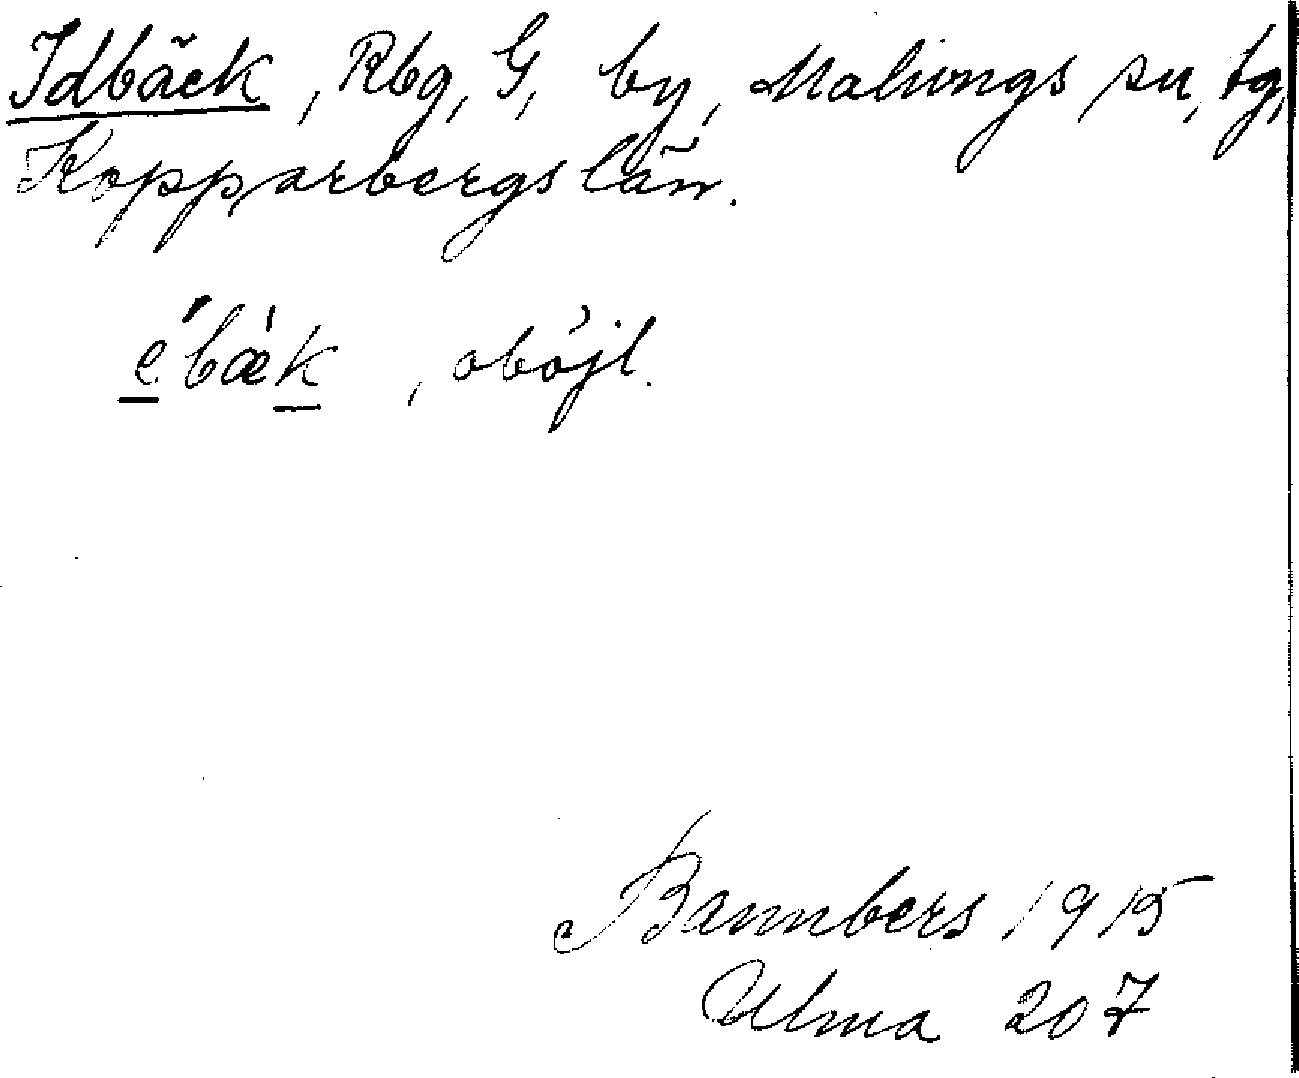 Idbäck, Rbg, G, by, Malungs sn, tg,
Kopparbergs län.
e̲'bæ'k̲, oböjl.
Bannbers 1915
Ulma 207